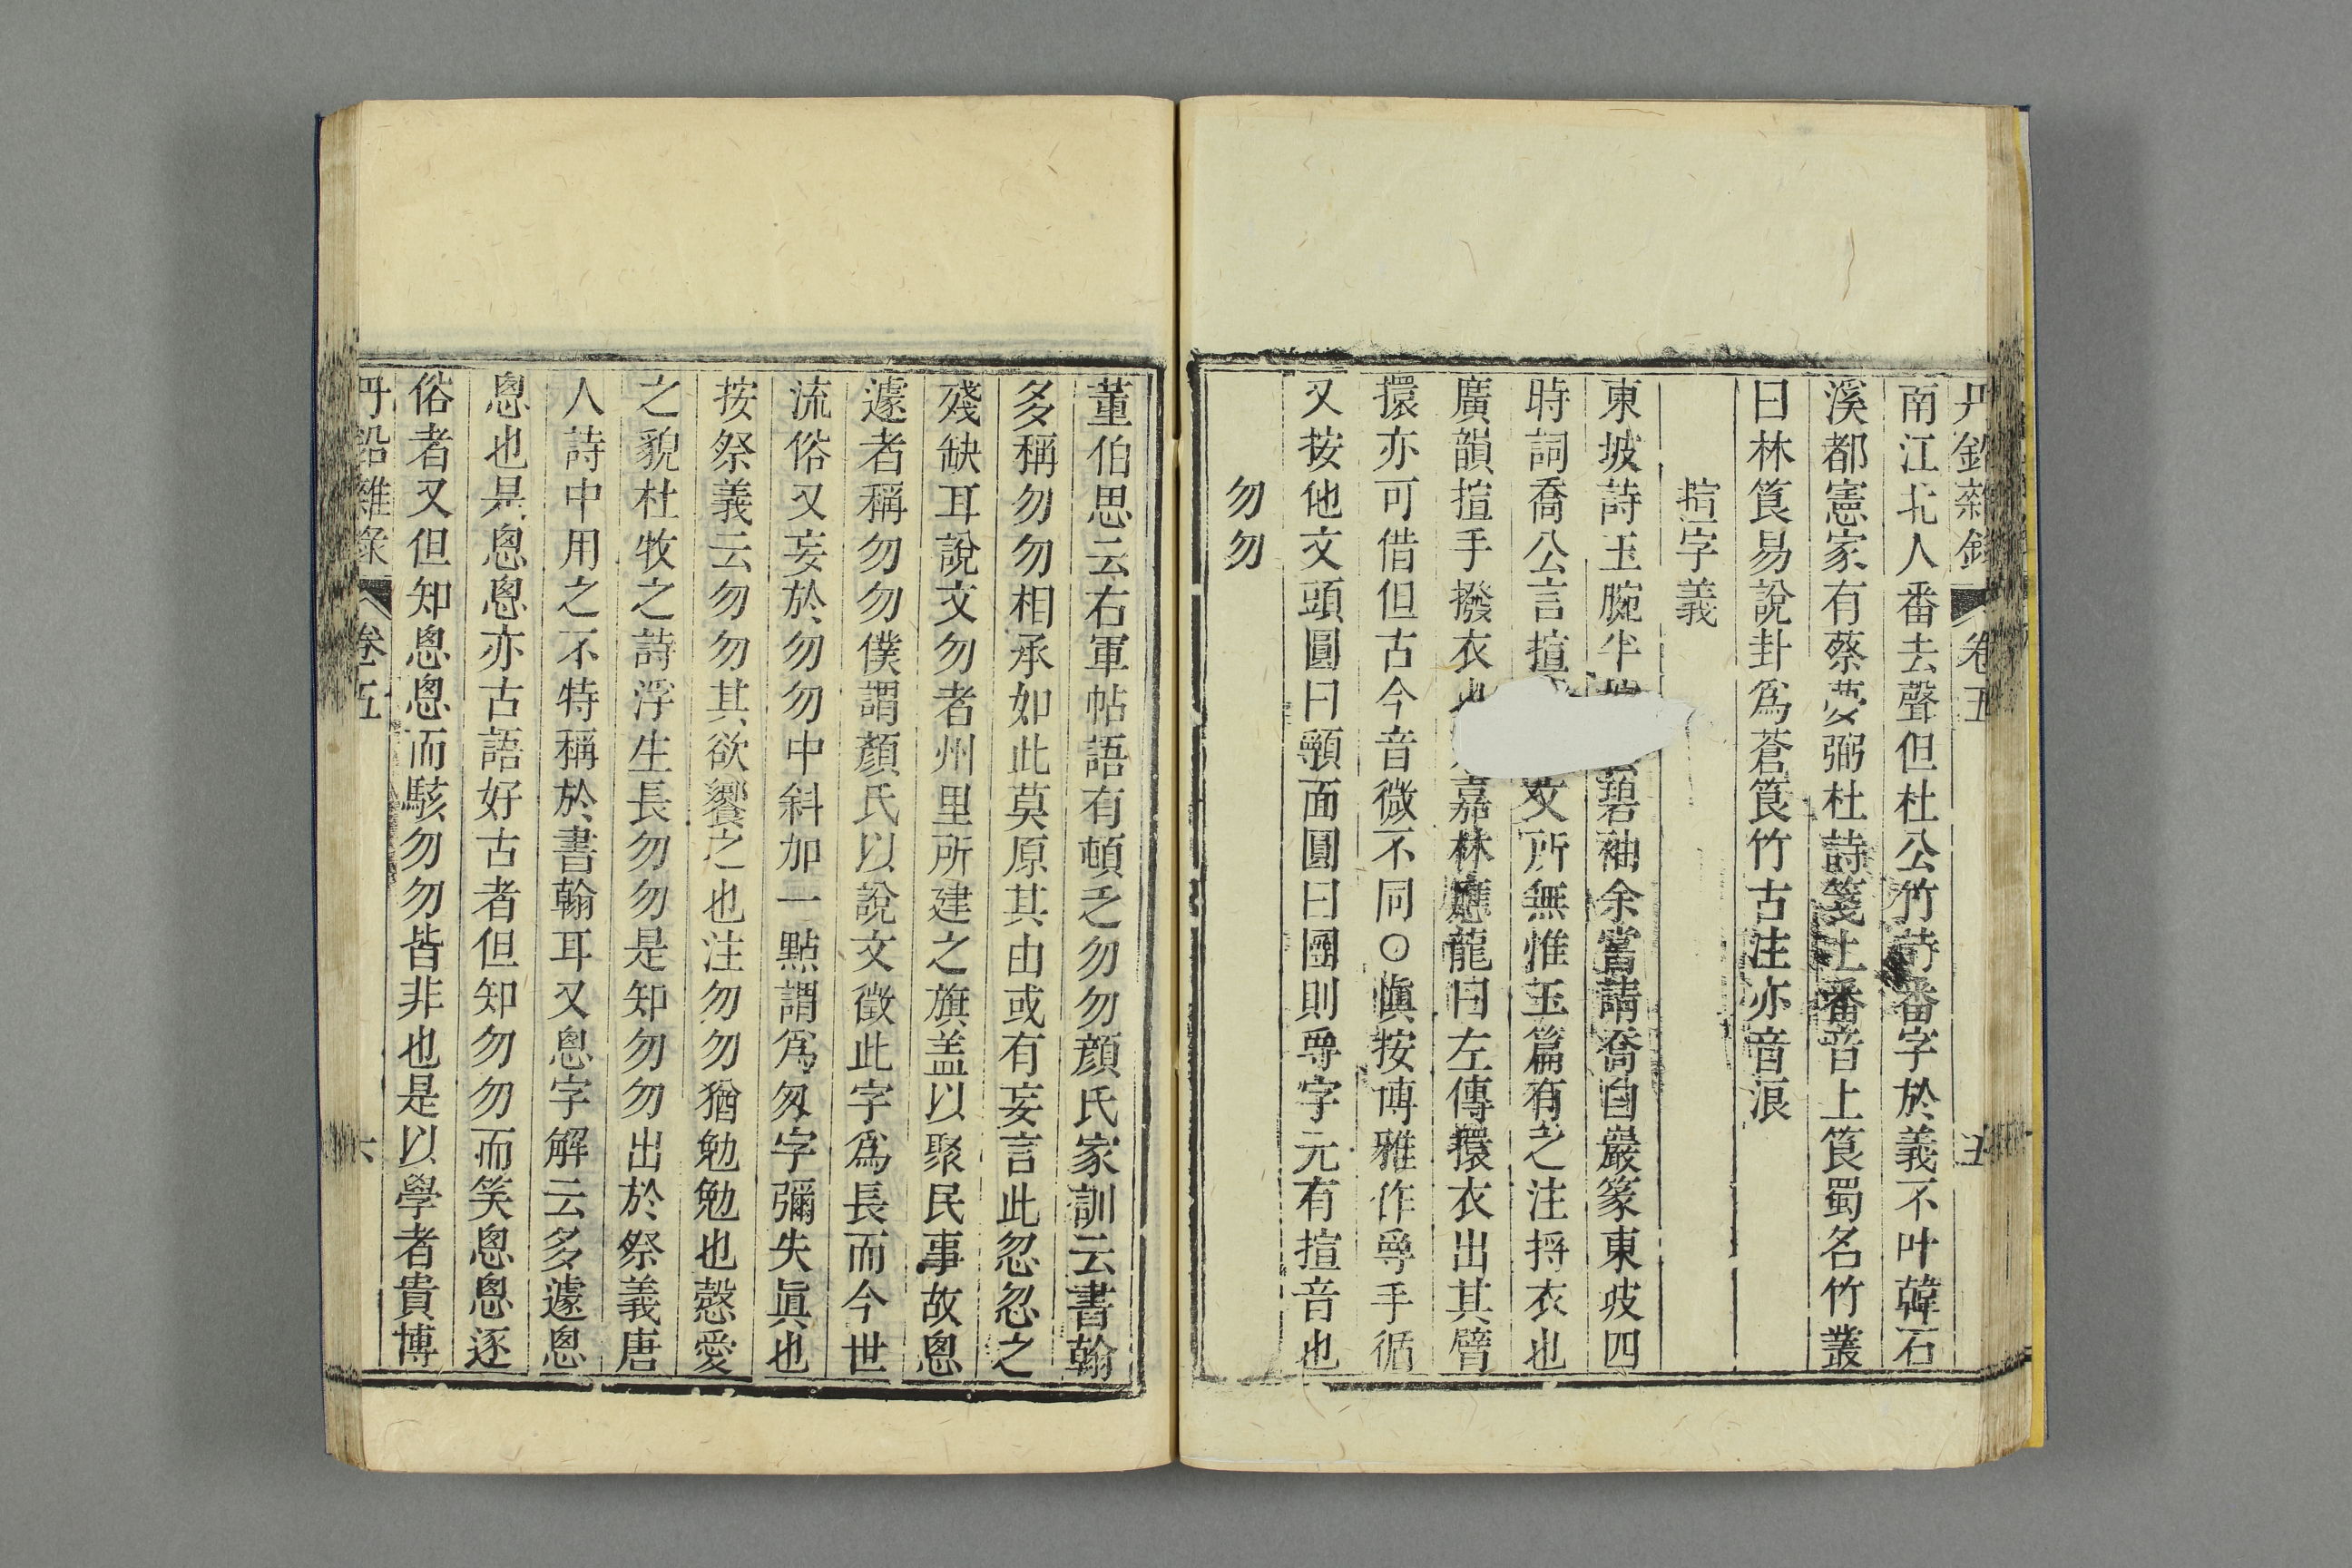 丹鉛雜錄 卷五 五
南江北人番去聲但杜公竹詩番字於義不叶韓石
溪都憲家有蔡夢弼杜詩箋上番音上筤蜀名竹叢
曰林筤易說卦爲蒼筤竹古注亦音浪
揎字義
東坡詩玉腕半 碧袖余嘗請喬白巖篆東坡四
時詞喬公言揎 文所無惟玉篇有之注捋衣也
廣韻揎手撥衣也 嘉林應龍曰左傳擐衣出其臂
擐亦可借但古今音微不同○愼按博雅作𢪸手循
又按他文頭圓曰顊面圓曰圞則𢪸字元有揎音也
勿勿
董伯思云右軍帖語有頓乏勿勿顔氏家訓云書翰
多稱勿勿相承如此莫原其由或有妄言此忽忽之
殘缺耳說文勿者州里所建之旗盖以聚民事故悤
遽者稱勿勿僕謂顏氏以說文徵此字爲長而今世
流俗又妄於勿勿中斜加一點謂爲匆字彌失眞也
按祭義云勿勿其欲饗之也注勿勿猶勉勉也慤愛
之貌杜牧之詩浮生長勿勿是知勿勿出於祭義唐
人詩中用之不特稱於書翰耳又悤字解云多遽悤
悤也是悤悤亦古語好古者但知勿勿而笑悤悤逐
俗者又但知悤悤而駭勿勿皆非也是以學者貴博
丹鉛雜錄 卷五 六